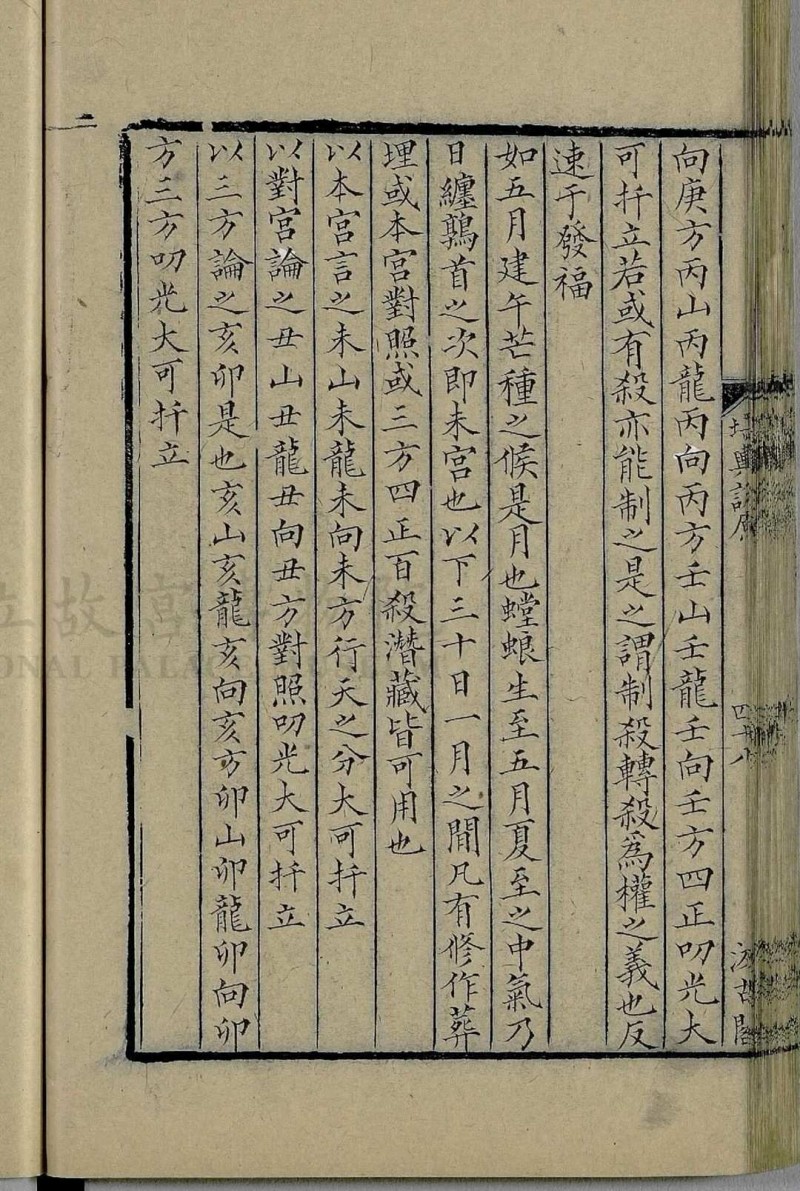 向庚方丙山丙龍丙向丙方壬山壬龍壬向壬方四正叨光大
可扦立若或有殺亦能制之是之謂制殺轉殺為權之義也反
速于發福
如五月建午芒種之候是月也螳蜋生至五月夏至之中氣乃
日纏鶉首之次即未宮也以下三十日一月之間凡有修作葬
埋或本宮對照或三方四正百殺潛藏皆可用也
以本宮言之未山未龍未向未方行天之分大可扦立
以對宮論之丑山丑龍丑向丑方對照叨光大可扦立
以三方論之亥卯是也亥山亥龍亥向亥方卯山卯龍卯向卯
方三方叨光大可扦立
二